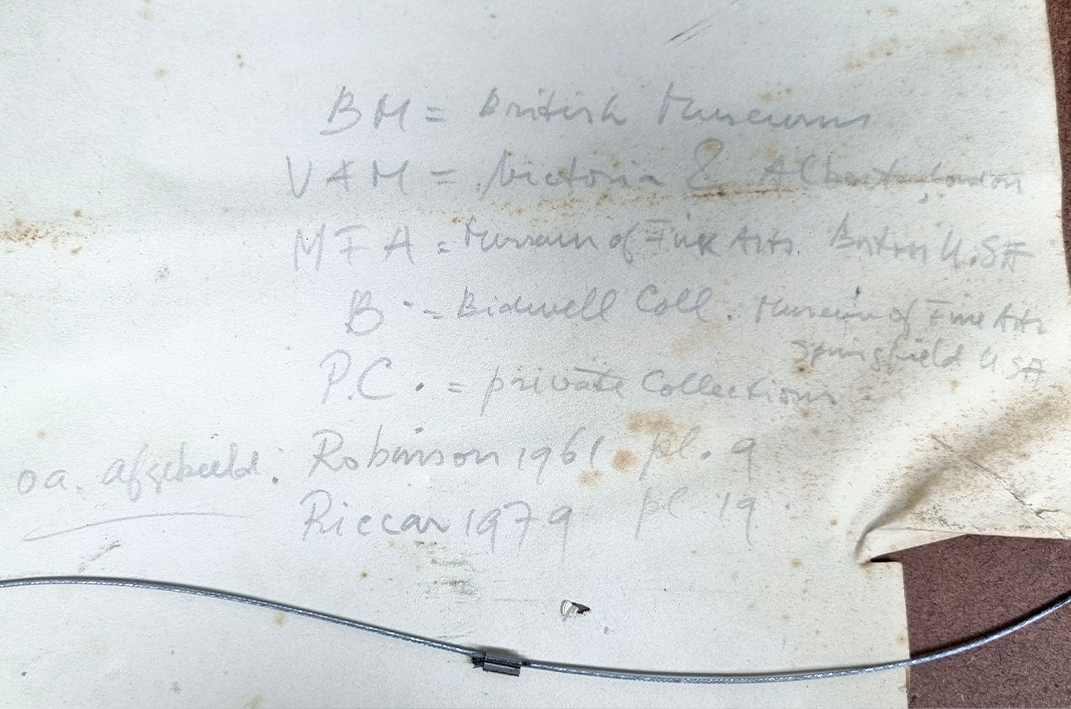 BM = British Museums
VAM = Victoria & Albert, London
MFA = Museum of Fine Arts. Boston U.SA
B - = Bidwell Coll. Museum of Fine Arts
Springfield USA
P.C. = private Collections.
oa. afgebeeld: Robinson 1961. pl. 9
Riccar 1979 pl 19